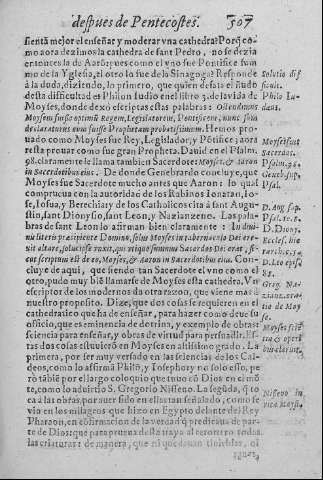 despues de Pentecostes. 307
sienta mejor el enseñar y moderar vna cathedra? Porq̃ co-
mo aora dezimos la cathedra de sant Pedro, no se dezia
entonces la de Aarõ: pues como el vno fue Pontifice sum
mo de la Yglesia, el otro lo fue de la Sinagoga? Responde
á la duda, diziendo, lo primero, que quien desata el ñudo
desta difficultad es Philon Iudio en el libro 3. de la vida de
Moyses, donde dexó escriptas estas palabras: Ostendimus
Moysem fuisse optimũ Regem, Legislatorem, Pontificem, nunc
declaraturus eum fuisse Prophetam probatissimum. Hemos pro-
uado como Moyses fue Rey, Legislador, y Põtifice; aora
resta prouar como fue gran Propheta. Dauid en el Psalm.
98. claramente le llama tambien Sacerdote: Moyses, & Aaron
in Sacerdotibus eius. De donde Genebrardo concluye, que
Moyses fue Sacerdote mucho antes que Aaron: lo qual
comprueua con la autoridad de los Rabinos Ionatan, Io-
se, Iosua, y Berechia; y de los Catholicos cita á sant Augus-
tin, sant Dionysio, sant Leon, y Nazianzeno. Las pala-
bras de sant Leon lo afirman bien claramente:
Con-
cluye de aqui, que siendo tan Sacerdote el vno como el
otro, pudo muy bien llamarse de Moyses esta cathedra. Vn
escriptor de los modernos da otra razon, que viene mas à
nuestro proposito. Dize, que dos cosas se requieren en el
cathedratico que ha de enseñar, para hazer como deue su
officio, que es eminencia de dotrina, y exemplo de obras:
sciencia para enseñar, y obras de virtud para persuadir. Es
tas dos cosas estuuierõ en Moyses en altissimo grado. La
primera, por ser muy versado en las sciencias de los Cal-
deos, como lo affirmã Philõ, y Iosepho; y no solo esso, pe
ro tãbiẽ por el largo coloquio que tuuo cõ Dios en el mõ
te, como lo aduirtio S. Gregorio Nisseno. La segũda, q̃ to
ca á las obras, por ser sido en ellas tan señalado, como se
vio en los milagros que hizo en Egypto delante del Rey
Pharaon, en cõfirmacion de la verdad q̃ predicaua de par-
te de Dios: que para prueua desta traya al retortero todas
las criaturas: de manera, que ni quedauan tinieblas, ni
Solutio dif
ficult.
Philo Iu-
daeus.
Moyses fuit
sacerdos.
Psalm. 98.
Psal.
D. Aug. sup.
D. Diony.
Eccles. hie
D. Leo epist.
Greg. Na-
tio de Moy
se.
Nisseno in
vita Moysi.